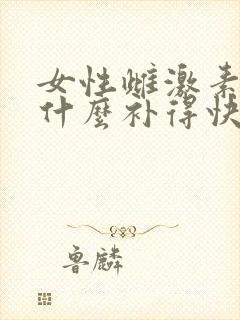 女性雌激素
什麼补得快
鲁麟